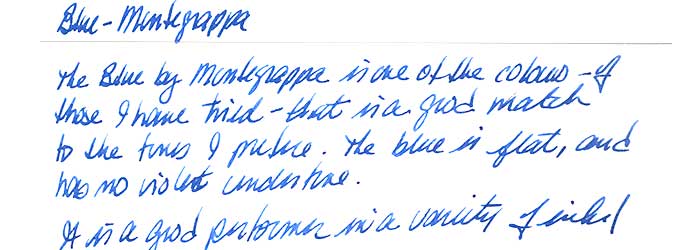 Blue - Montegrappa
The Blue by Montegrappa is one of the colours - of
those I have tried - that is a good match
to the tones I prefer. The blue is flat, and
has no violet undertone.
It is a good performer in a variety of